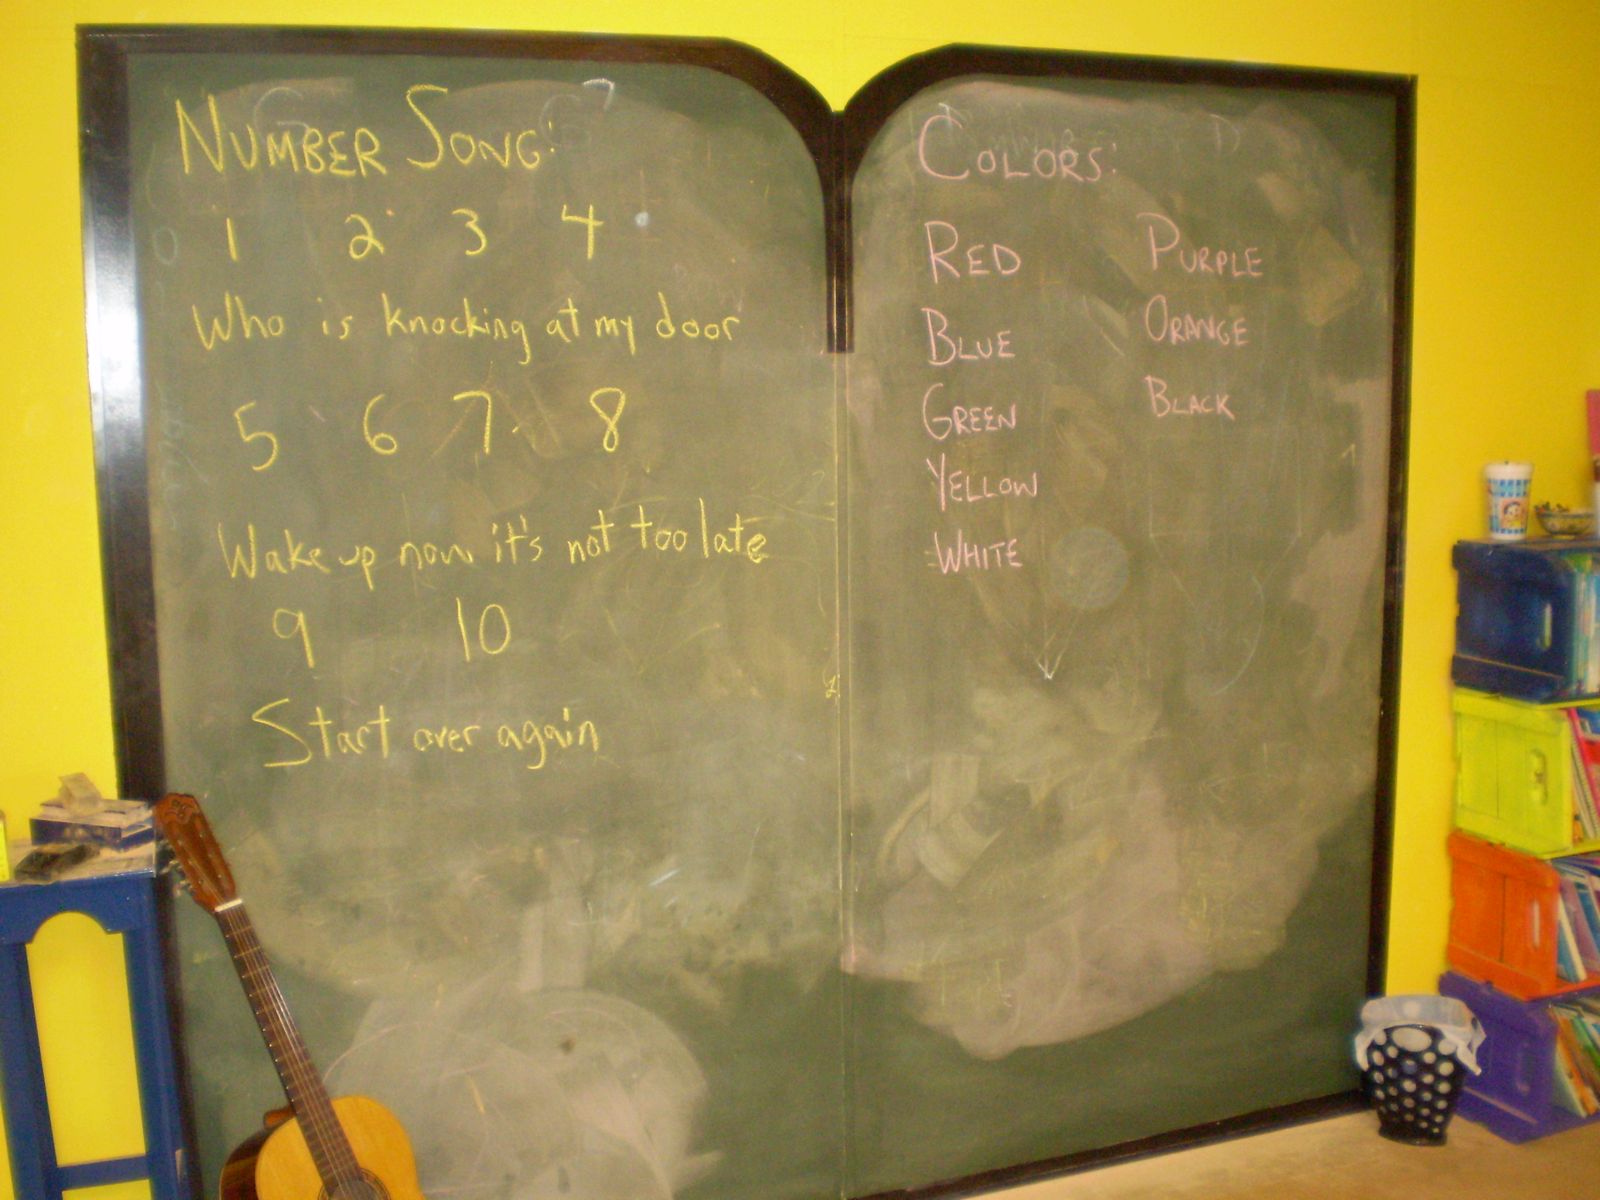 NUMBER SONG:
1 2 3 4
Who is knocking at my door
5 6 7 8
Wake up now it's not too late
9 10
Start over again
COLORS:
RED
BLUE
GREEN
YELLOW
WHITE
PURPLE
ORANGE
BLACK